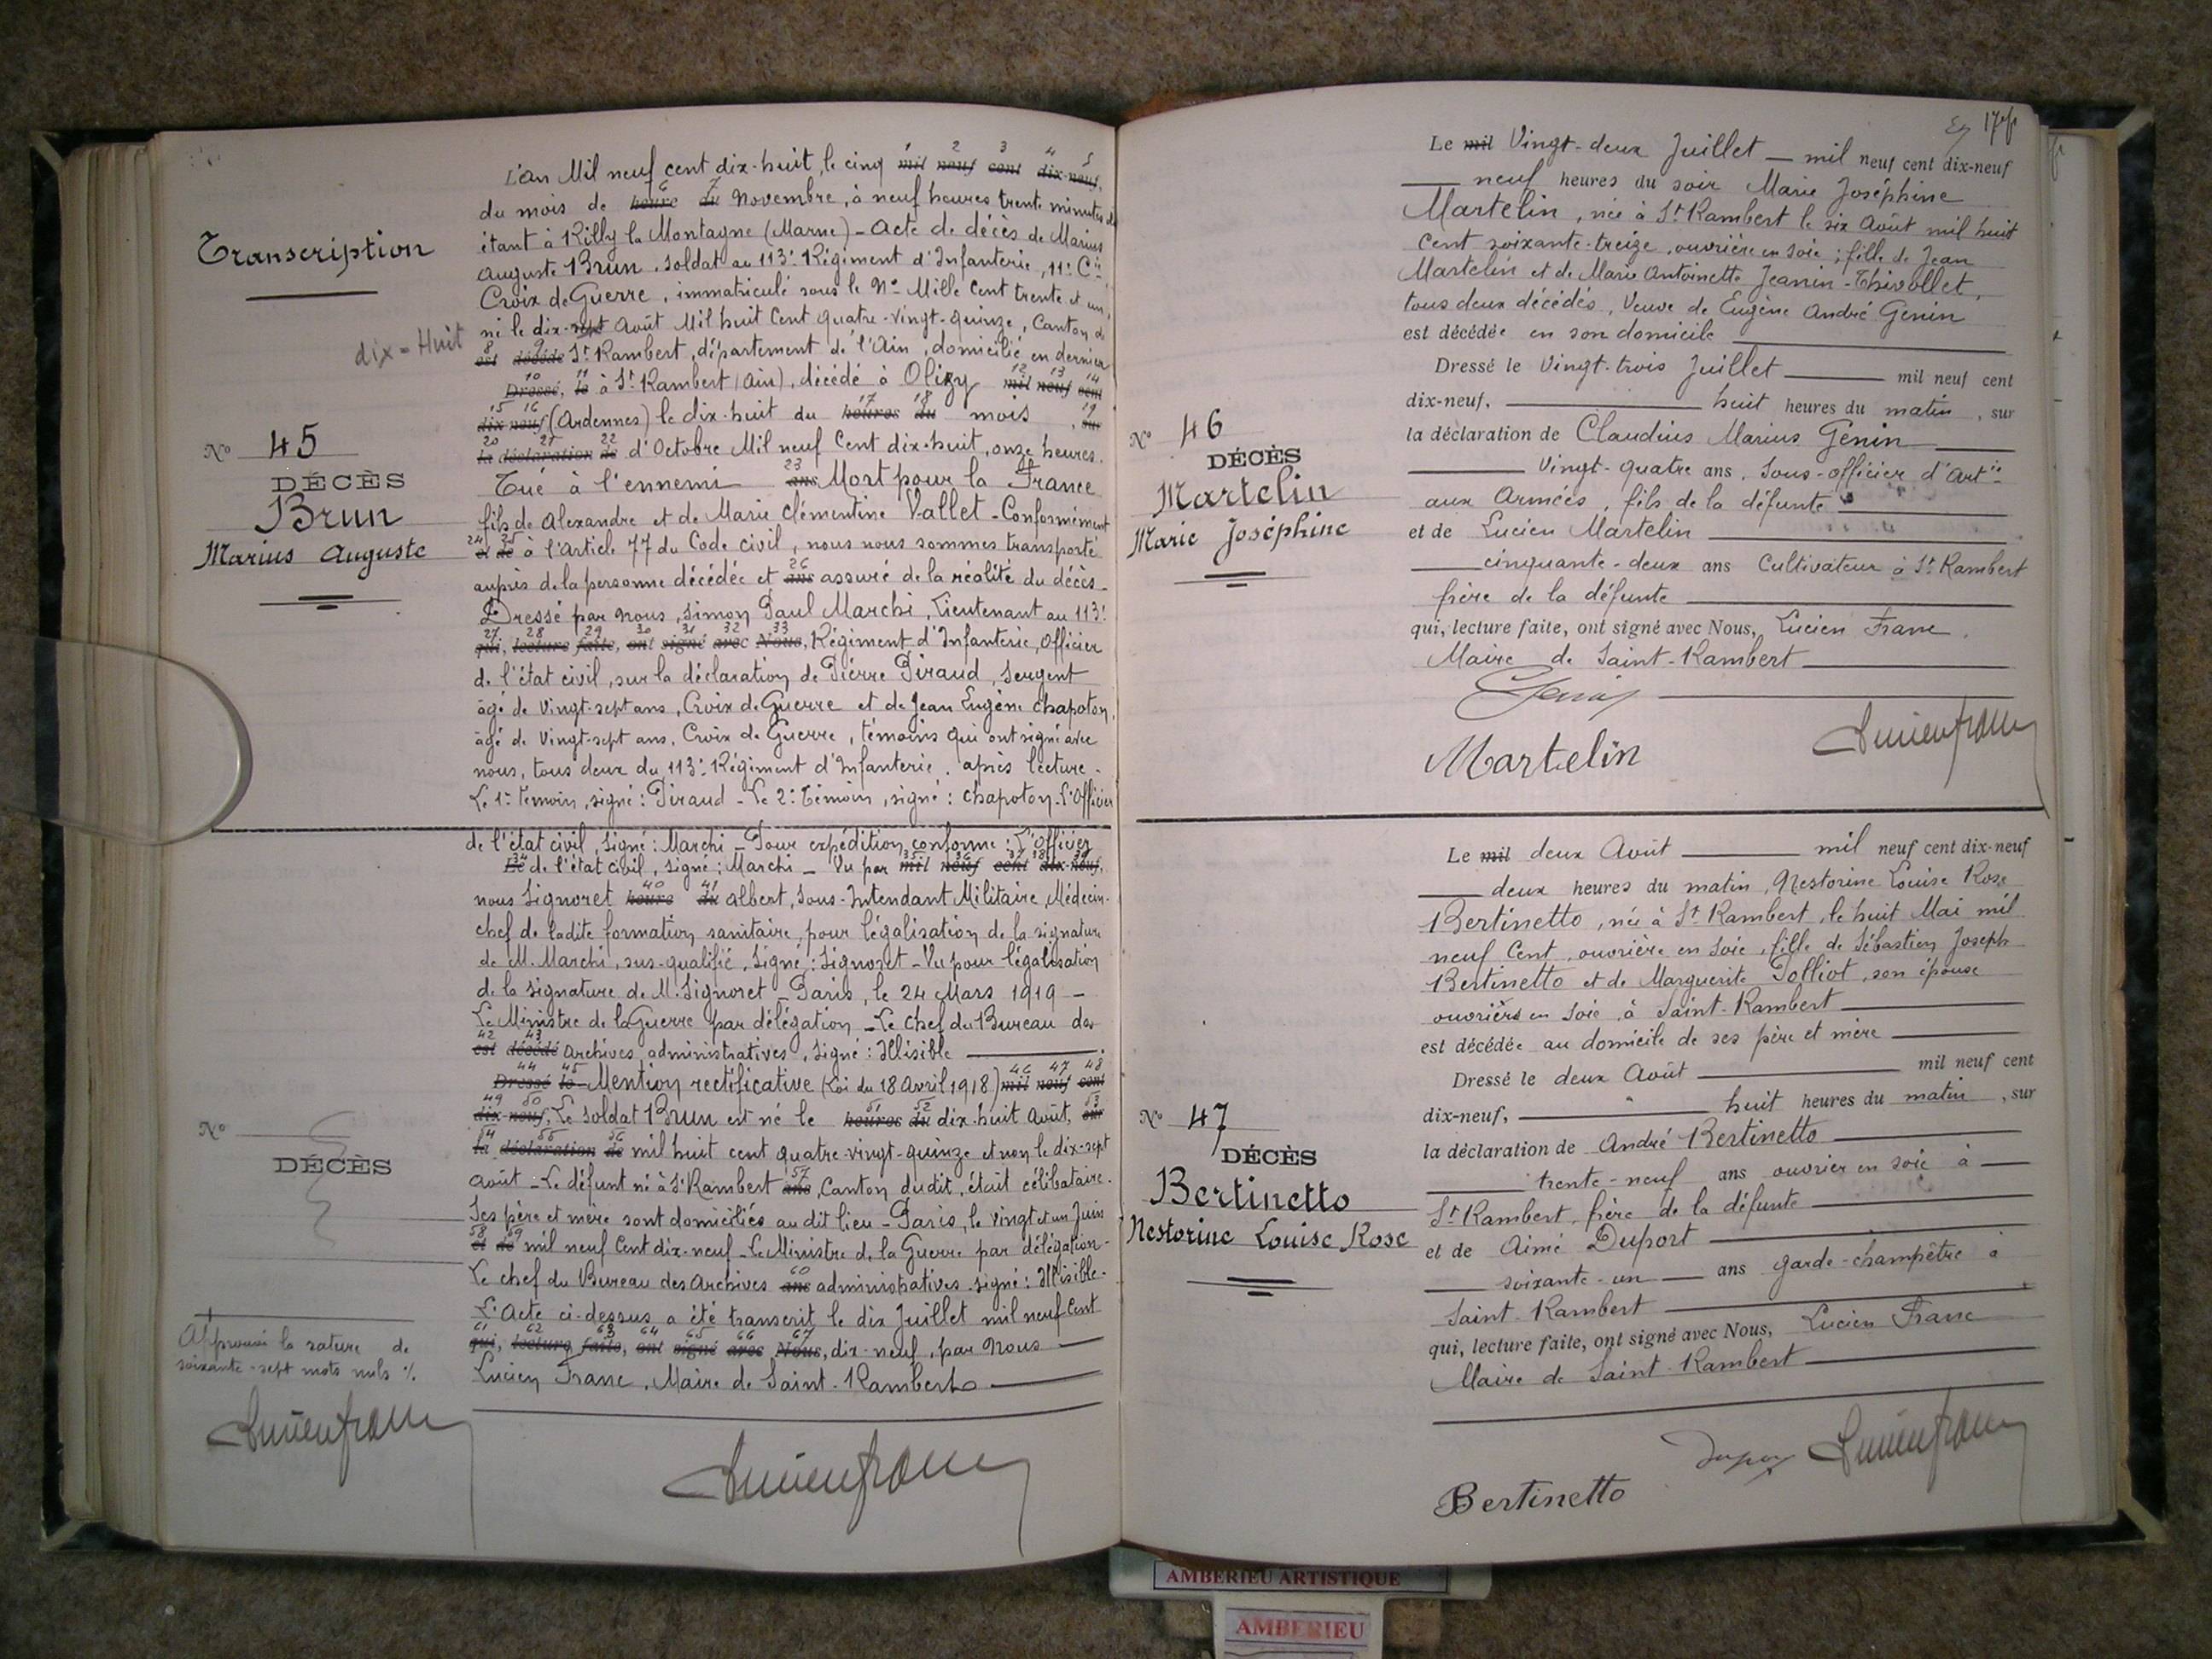 Transcription
dix-Huit
N° 45
DÉCÈS
Brun
Marius Auguste
L'an Mil neuf cent dix-huit, le cinq mil neuf cent dix-neuf,
1 2 3 4 5
du mois de heure du Novembre, à neuf heures trente minutes
6 7
étant à Rilly la Montagne (Marne) - Acte de décès de Marius
Auguste Brun, soldat au 113e Régiment d'Infanterie, 11e Cie
Croix de Guerre, immatriculé sous le No Mille Cent trente et un,
né le dix-sept Août Mil huit Cent quatre-vingt-quinze, Canton de
8 9
est décédé St Rambert, département de l'Ain, domicilié en dernier
10 11 12 13 14
Dressé, le à St Rambert (Ain), décédé à Olizy mil neuf cent
15 16 17 18 19
dix-neuf (Ardennes) le dix-huit du heures du mois, sur
20 21 22
la déclaration de d'Octobre Mil neuf Cent dix-huit, onze heures.
23
Tué à l'ennemi ans Mort pour la France
fils de Alexandre et de Marie Clémentine Vallet - Conformément
24 25
et de à l'Article 77 du Code civil, nous nous sommes transporté
26
auprès de la personne décédée et ans assuré de la réalité du décès -
Dressé par nous, Simon Paul Marchi, Lieutenant au 113e
27 28 29 30 31 32 33
qui, lecture faite, ont signé avec Nous, Régiment d'Infanterie, Officier
de l'état civil, sur la déclaration de Pierre Piraud, Sergent
âgé de Vingt-sept ans, Croix de Guerre et de Jean Eugène Chapoton,
âgé de Vingt-sept ans, Croix de Guerre, témoins qui ont signé avec
nous, tous deux du 113e Régiment d'Infanterie, après lecture -
Le 1er témoin, signé : Piraud - Le 2e témoin, signé : Chapoton - L'Officier
de l'état civil, signé : Marchi - Pour expédition conforme : L'officier
34 35 36 37 38 39
Le de l'état civil, signé : Marchi - Vu par mil neuf cent dix-neuf,
40 41
nous Signoret heure du Albert, Sous-Intendant Militaire, Médecin-
chef de ladite formation sanitaire, pour légalisation de la signature
de M. Marchi, sus-qualifié, signé : Signoret - Vu pour légalisation
de la signature de M. Signoret - Paris, le 24 Mars 1919 -
Le Ministre de la Guerre par délégation - Le chef du Bureau des
42 43
est décédé archives administratives, signé : Illisible
44 45 46 47 48
Dressé le - Mention rectificative (Loi du 18 Avril 1918) mil neuf cent
49 50 51 52 53
dix-neuf, Le soldat Brun est né le heures du dix-huit Août, sur
54 55 56
la déclaration de mil huit cent quatre-vingt-quinze et non le dix-sept
57
Août - Le défunt né à St Rambert ans, Canton dudit, était célibataire.
Ses père et mère sont domiciliés au dit lieu - Paris, le vingt et un Juin
58 59
et de mil neuf Cent dix-neuf - Le Ministre de la Guerre par délégation -
60
Le chef du Bureau des Archives ans administratives signé : Illisible -
L'Acte ci-dessus a été transcrit le dix Juillet mil neuf Cent
61 62 63 64 65 66 67
qui, lecture faite, ont signé avec Nous, dix-neuf, par Nous
Lucien Franc, Maire de Saint-Rambert
N°
DÉCÈS
Approuvé la rature de
soixante-sept mots nuls
Lucien Franc
Lucien Franc
17
N° 46
DÉCÈS
Martelin
Marie Joséphine
Le mil Vingt-deux Juillet — mil neuf cent dix-neuf
neuf heures du soir Marie Joséphine
Martelin, née à St Rambert le six Août mil huit
Cent soixante-treize, ouvrière en soie ; fille de Jean
Martelin et de Marie Antoinette Jeanin-Thivollet,
tous deux décédés, Veuve de Eugène André Genin
est décédée en son domicile
Dressé le Vingt-trois Juillet mil neuf cent
dix-neuf, huit heures du matin, sur
la déclaration de Claudius Marius Genin
Vingt-quatre ans, Sous-officier d'Artie
aux Armées, fils de la défunte
et de Lucien Martelin
cinquante-deux ans Cultivateur à St Rambert
frère de la défunte
qui, lecture faite, ont signé avec Nous, Lucien Franc,
Maire de Saint-Rambert
Genin
Martelin
Lucien Franc
N° 47
DÉCÈS
Bertinetto
Nestorine Louise Rose
Le mil deux Août mil neuf cent dix-neuf
deux heures du matin, Nestorine Louise Rose
Bertinetto, née à St Rambert, le huit Mai mil
neuf Cent, ouvrière en soie, fille de Sébastien Joseph
Bertinetto et de Marguerite Polliot, son épouse
ouvriers en soie, à Saint-Rambert
est décédée au domicile de ses père et mère
Dressé le deux Août mil neuf cent
dix-neuf, huit heures du matin, sur
la déclaration de André Bertinetto
trente-neuf ans ouvrier en soie à
St Rambert, frère de la défunte
et de Aimé Duport
soixante-un ans garde-champêtre à
Saint-Rambert
qui, lecture faite, ont signé avec Nous, Lucien Franc
Maire de Saint-Rambert
Duport
Lucien Franc
Bertinetto
AMBERIEU ARTISTIQUE
AMBERIEU